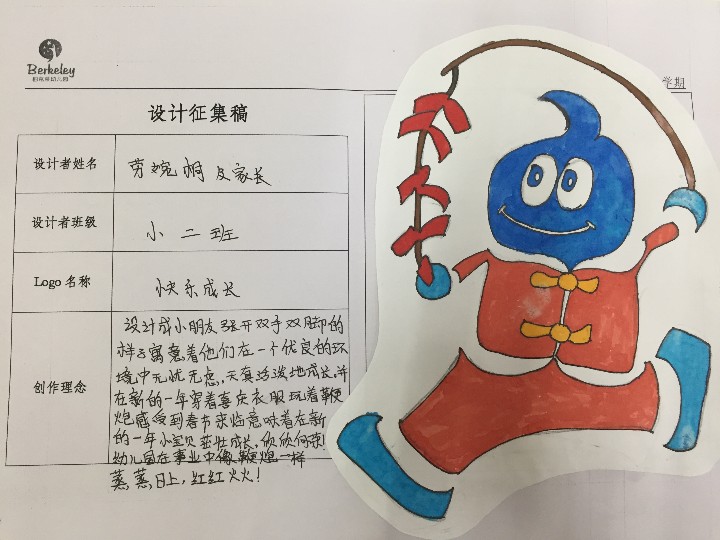 Berkeley
学期
设计征集稿
设计者姓名
劳婉桐及家长
设计者班级
小二班
Logo 名称
快乐成长
创作理念
设计成小朋友张开双手双脚的
样子寓意着他们在一个优良的环
境中无忧无虑,天真活泼地成长,并
在新的一年穿着喜庆衣服玩着鞭
炮感受到春节来临意味着在新
的一年小宝贝茁壮成长,欣欣向荣!
幼儿园在事业中像鞭炮一样
蒸蒸日上,红红火火!